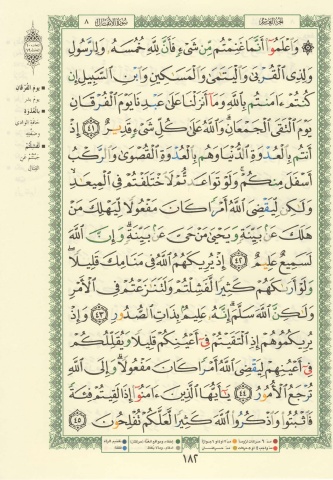 الجزء العاشر
سورة الأنفال ٨
وَاعْلَمُوا أَنَّمَا غَنِمْتُم مِّن شَيْءٍ فَأَنَّ لِلَّهِ خُمُسَهُ وَلِلرَّسُولِ
وَلِذِي الْقُرْبَىٰ وَالْيَتَامَىٰ وَالْمَسَاكِينِ وَابْنِ السَّبِيلِ إِن
كُنتُمْ ءَامَنتُم بِاللَّهِ وَمَا أَنزَلْنَا عَلَىٰ عَبْدِنَا يَوْمَ الْفُرْقَانِ
يَوْمَ الْتَقَى الْجَمْعَانِ وَاللَّهُ عَلَىٰ كُلِّ شَيْءٍ قَدِيرٌ ٤١ إِذْ
أَنتُم بِالْعُدْوَةِ الدُّنْيَا وَهُم بِالْعُدْوَةِ الْقُصْوَىٰ وَالرَّكْبُ
أَسْفَلَ مِنكُمْ وَلَوْ تَوَاعَدتُّمْ لَاخْتَلَفْتُمْ فِي الْمِيعَادِ
وَلَٰكِن لِّيَقْضِيَ اللَّهُ أَمْرًا كَانَ مَفْعُولًا لِّيَهْلِكَ مَنْ
هَلَكَ عَن بَيِّنَةٍ وَيَحْيَىٰ مَنْ حَيَّ عَن بَيِّنَةٍ وَإِنَّ اللَّهَ
لَسَمِيعٌ عَلِيمٌ ٤٢ إِذْ يُرِيكَهُمُ اللَّهُ فِي مَنَامِكَ قَلِيلًا
وَلَوْ أَرَاكَهُمْ كَثِيرًا لَّفَشِلْتُمْ وَلَتَنَازَعْتُمْ فِي الْأَمْرِ
وَلَٰكِنَّ اللَّهَ سَلَّمَ إِنَّهُ عَلِيمٌ بِذَاتِ الصُّدُورِ ٤٣ وَإِذْ
يُرِيكُمُوهُمْ إِذِ الْتَقَيْتُمْ فِي أَعْيُنِكُمْ قَلِيلًا وَيُقَلِّلُكُمْ
فِي أَعْيُنِهِمْ لِيَقْضِيَ اللَّهُ أَمْرًا كَانَ مَفْعُولًا وَإِلَى اللَّهِ
تُرْجَعُ الْأُمُورُ ٤٤ يَا أَيُّهَا الَّذِينَ ءَامَنُوا إِذَا لَقِيتُمْ فِئَةً
فَاثْبُتُوا وَاذْكُرُوا اللَّهَ كَثِيرًا لَّعَلَّكُمْ تُفْلِحُونَ ٤٥
يوم الفرقان
يوم بدر
بالعدوة
حافة الوادي
وضفته
لفشلتم
لجبنتم عن
القتال
١٨٢